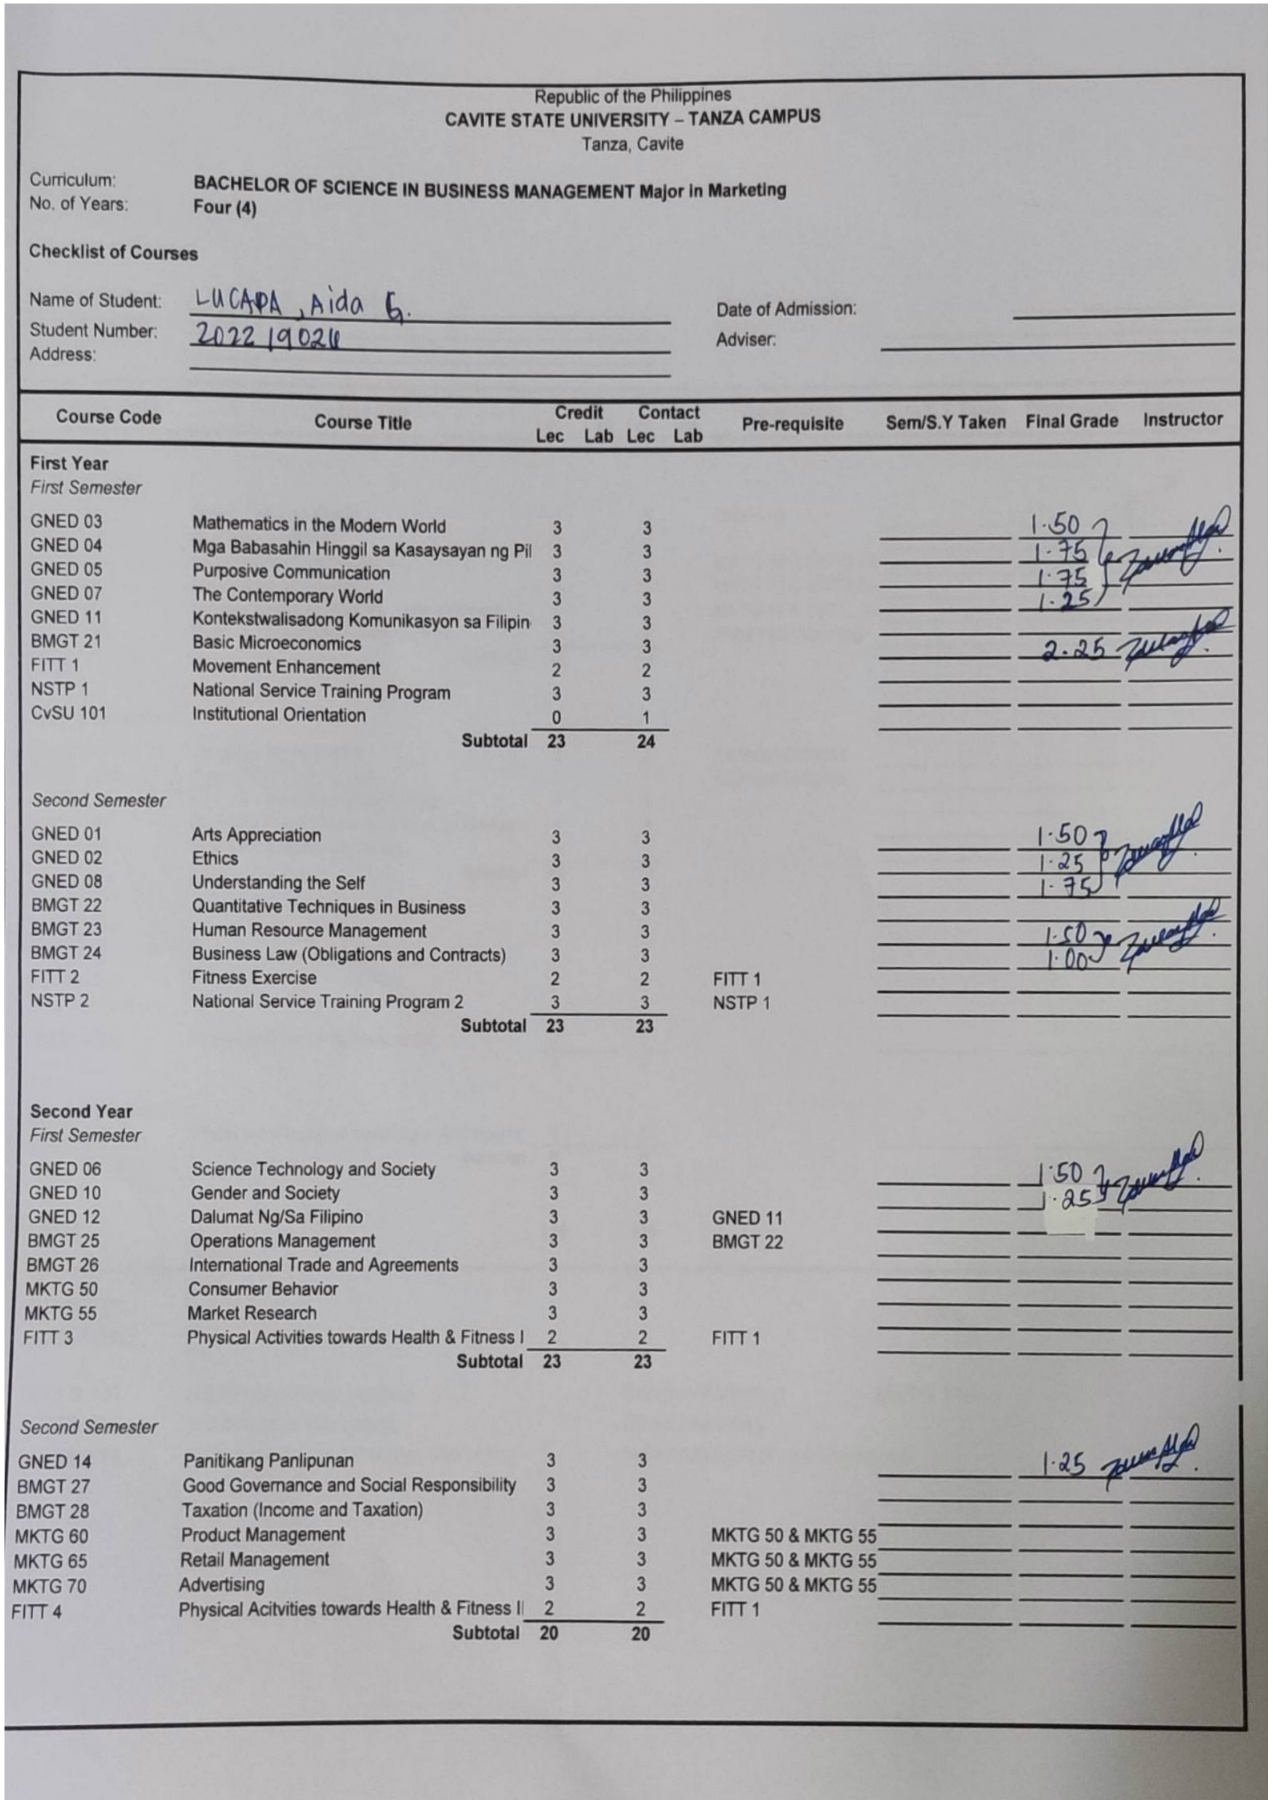 Republic of the Philippines
CAVITE STATE UNIVERSITY – TANZA CAMPUS
Tanza, Cavite
Curriculum: BACHELOR OF SCIENCE IN BUSINESS MANAGEMENT Major in Marketing
No. of Years: Four (4)
Checklist of Courses
Name of Student: LUCAPA, Aida G. Date of Admission:
Student Number: Adviser:
Address:
Course Code Course Title Credit Contact Pre-requisite Sem/S.Y Taken Final Grade Instructor
Lec Lab Lec Lab
First Year
First Semester
GNED 03 Mathematics in the Modern World 3 3 1.50
GNED 04 Mga Babasahin Hinggil sa Kasaysayan ng Pil 3 3 1.75
GNED 05 Purposive Communication 3 3 1.75
GNED 07 The Contemporary World 3 3 1.25
GNED 11 Kontekstwalisadong Komunikasyon sa Filipin 3 3
BMGT 21 Basic Microeconomics 3 3 2.25
FITT 1 Movement Enhancement 2 2
NSTP 1 National Service Training Program 3 3
CvSU 101 Institutional Orientation 0 1
Subtotal 23 24
Second Semester
GNED 01 Arts Appreciation 3 3 1.50
GNED 02 Ethics 3 3 1.25
GNED 08 Understanding the Self 3 3 1.75
BMGT 22 Quantitative Techniques in Business 3 3
BMGT 23 Human Resource Management 3 3 1.50
BMGT 24 Business Law (Obligations and Contracts) 3 3 1.00
FITT 2 Fitness Exercise 2 2 FITT 1
NSTP 2 National Service Training Program 2 3 3 NSTP 1
Subtotal 23 23
Second Year
First Semester
GNED 06 Science Technology and Society 3 3 1.50
GNED 10 Gender and Society 3 3 1.25
GNED 12 Dalumat Ng/Sa Filipino 3 3 GNED 11
BMGT 25 Operations Management 3 3 BMGT 22
BMGT 26 International Trade and Agreements 3 3
MKTG 50 Consumer Behavior 3 3
MKTG 55 Market Research 3 3
FITT 3 Physical Activities towards Health & Fitness I 2 2 FITT 1
Subtotal 23 23
Second Semester
GNED 14 Panitikang Panlipunan 3 3 1.25
BMGT 27 Good Governance and Social Responsibility 3 3
BMGT 28 Taxation (Income and Taxation) 3 3
MKTG 60 Product Management 3 3 MKTG 50 & MKTG 55
MKTG 65 Retail Management 3 3 MKTG 50 & MKTG 55
MKTG 70 Advertising 3 3 MKTG 50 & MKTG 55
FITT 4 Physical Acitvities towards Health & Fitness I 2 2 FITT 1
Subtotal 20 20